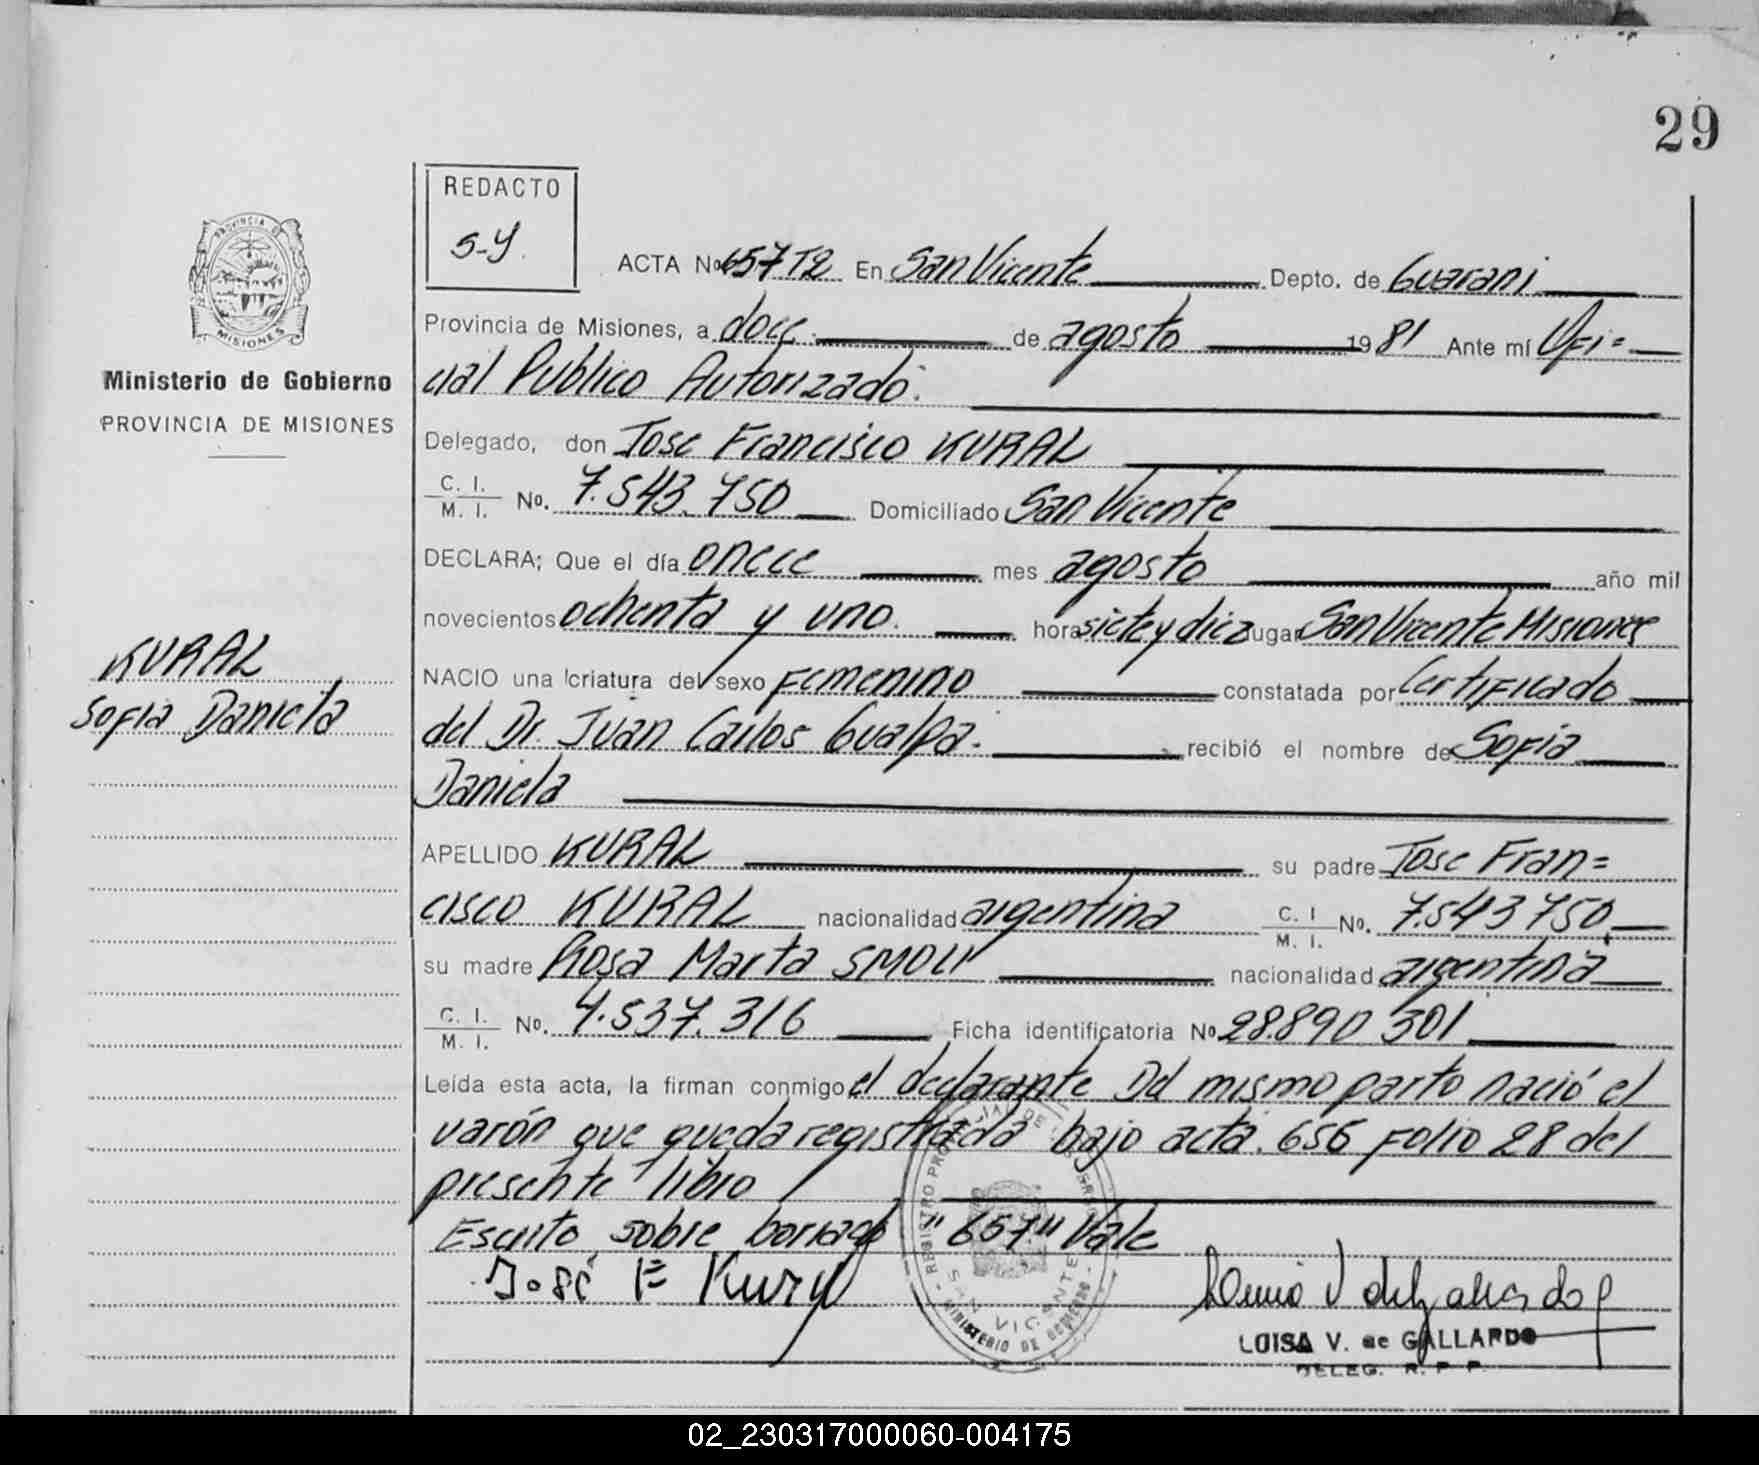 29
REDACTO
S-Y.
PROVINCIA DE
MISIONES
Ministerio de Gobierno
PROVINCIA DE MISIONES
ACTA No 657 T2 En San Vicente Depto. de Guarani
Provincia de Misiones, a doce de agosto 1981 Ante mí Ofi=
cial Publico Autorizado.
Delegado, don Jose Francisco KURAL
C. I. / M. I. No. 7.543.750 Domiciliado San Vicente
DECLARA; Que el día once mes agosto año mil
novecientos ochenta y uno. hora siete y diez lugar San Vicente Misiones
KURAL
Sofia Daniela
NACIO una criatura del sexo Femenino constatada por Certificado
del Dr. Juan Carlos Gualpa. recibió el nombre de Sofia
Daniela
APELLIDO KURAL su padre Jose Fran=
cisco KURAL nacionalidad argentina C. I / M. I. No. 7.543 750
su madre Rosa Marta nacionalidad argentina
C. I. / M. I. No. 4.537.316 Ficha identificatoria No 28.890 301
Leída esta acta, la firman conmigo el declarante Del mismo parto nació el
varón que queda registrada bajo acta. 656 Folio 28 del
presente libro
Escrito sobre borrado "657" Vale
José F Kural
REGISTRO
SAN VICENTE
MINISTERIO DE GOBIERNO
LUISA V. de GALLARDO
DELEG. R. P. P.
02_230317000060-004175